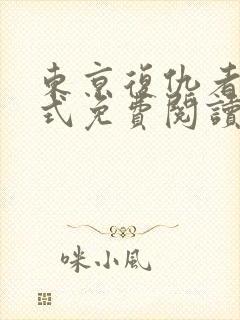 東京復仇者
式免費閱讀
咪小風